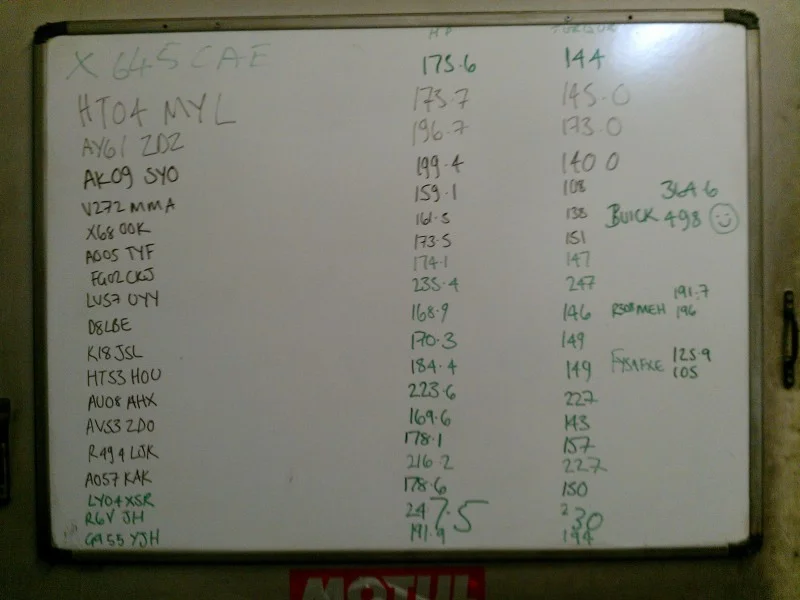 HP TORQUE
X645 CAE 175.6 144
HT04 MYL 173.7 145.0
AY61 ZDZ 196.7 173.0
AK09 SYO 199.4 140 0
V272 MMA 159.1 108 364.6
X68 OOK 161.5 138 BUICK 498
AO05 TYF 173.5 151
FG02 CKJ 174.1 147
LV57 UYY 235.4 247 191.7
D8LBE 168.9 146 R50 MEH 196
K18 JSL 170.3 149
HT53 HOU 184.4 149 125.9
AU08 AHX 223.6 227 105
AV53 ZDO 169.6 143
R494 LJK 178.1 157
AO57 KAK 216.2 227
LY04 XSR 178.6 150
R6V JH 247.5 230
G955 YJH 191.9 194
MOTUL